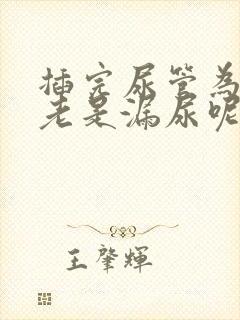 插完尿管為
老是漏尿呢
王肇輝